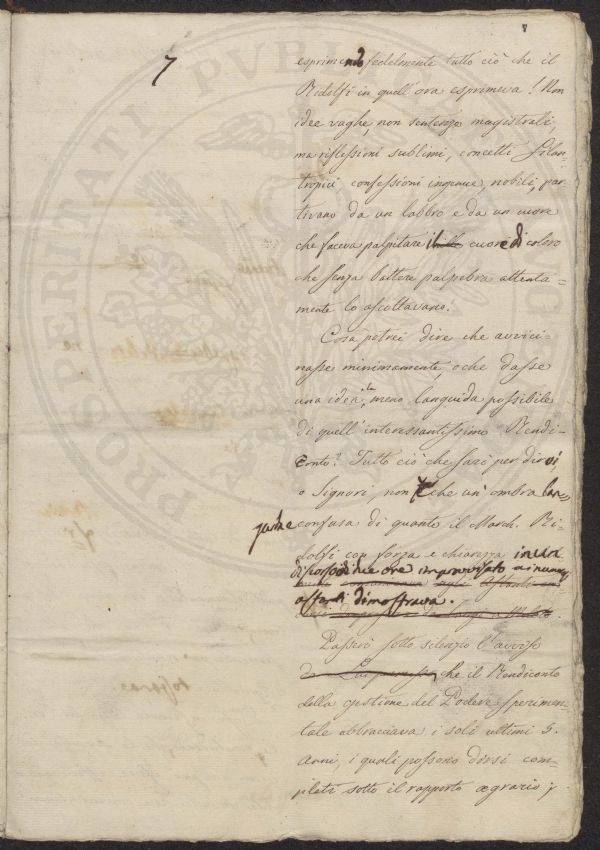 7
esprimendo fedelmente tutto ciò che il
Ridolfi in quell'ora esprimeva! Non
idee vaghe, non sentenze magistrali,
ma riflessioni sublimi, concetti filan-
tropici confessioni ingenue, nobili, par-
tivano da un labbro e da un cuore
che faceva palpitare il cuore di coloro
che senza batter palpebra attenta=
mente lo ascoltavano.
Cosa potrei dire che avvici-
nasse minimamente, o che dasse
una idea, la meno languida possibile
di quell'interessantissimo Rendi-
Conto? Tutto ciò che sarò per dirvi
o Signori, non è che un'ombra lan-
guida e confusa di quanto il March. Ri-
dolfi con forza e chiarezza in un
discorso di due ore improvvisato a i numerosi
astanti dimostrava.
Passerò sotto silenzio l'avviso
che il Rendiconto
della gestione del Podere sperimen-
tale abbracciava i soli ultimi 5.
anni, i quali possono dirsi com-
pleti sotto il rapporto agrario;
PROSPERITATI PVBLICAE